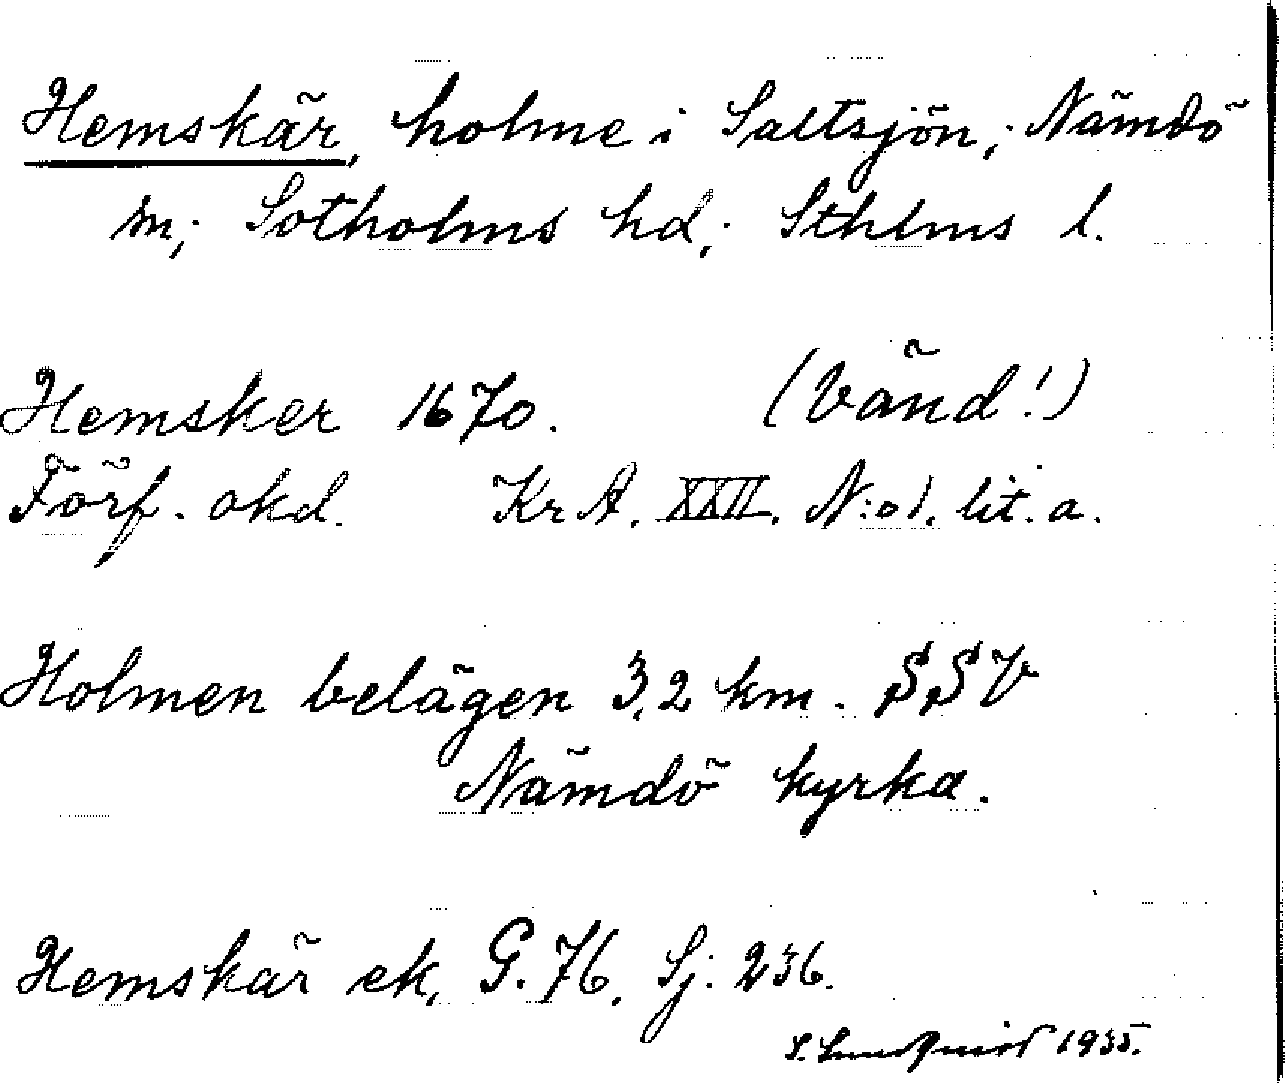 Hemskär, holme i Saltsjön; Nämdö
sn; Sotholms hd; Sthlms l.
Hemsker 1670. (Vänd!)
Förf. okd. KrA. XXII. N:o 1. lit. a.
Holmen belägen 3,2 km. SSV
Nämdö kyrka.
Hemskär ek, G. 76. Sj: 236.
S. Lundquist 1935.